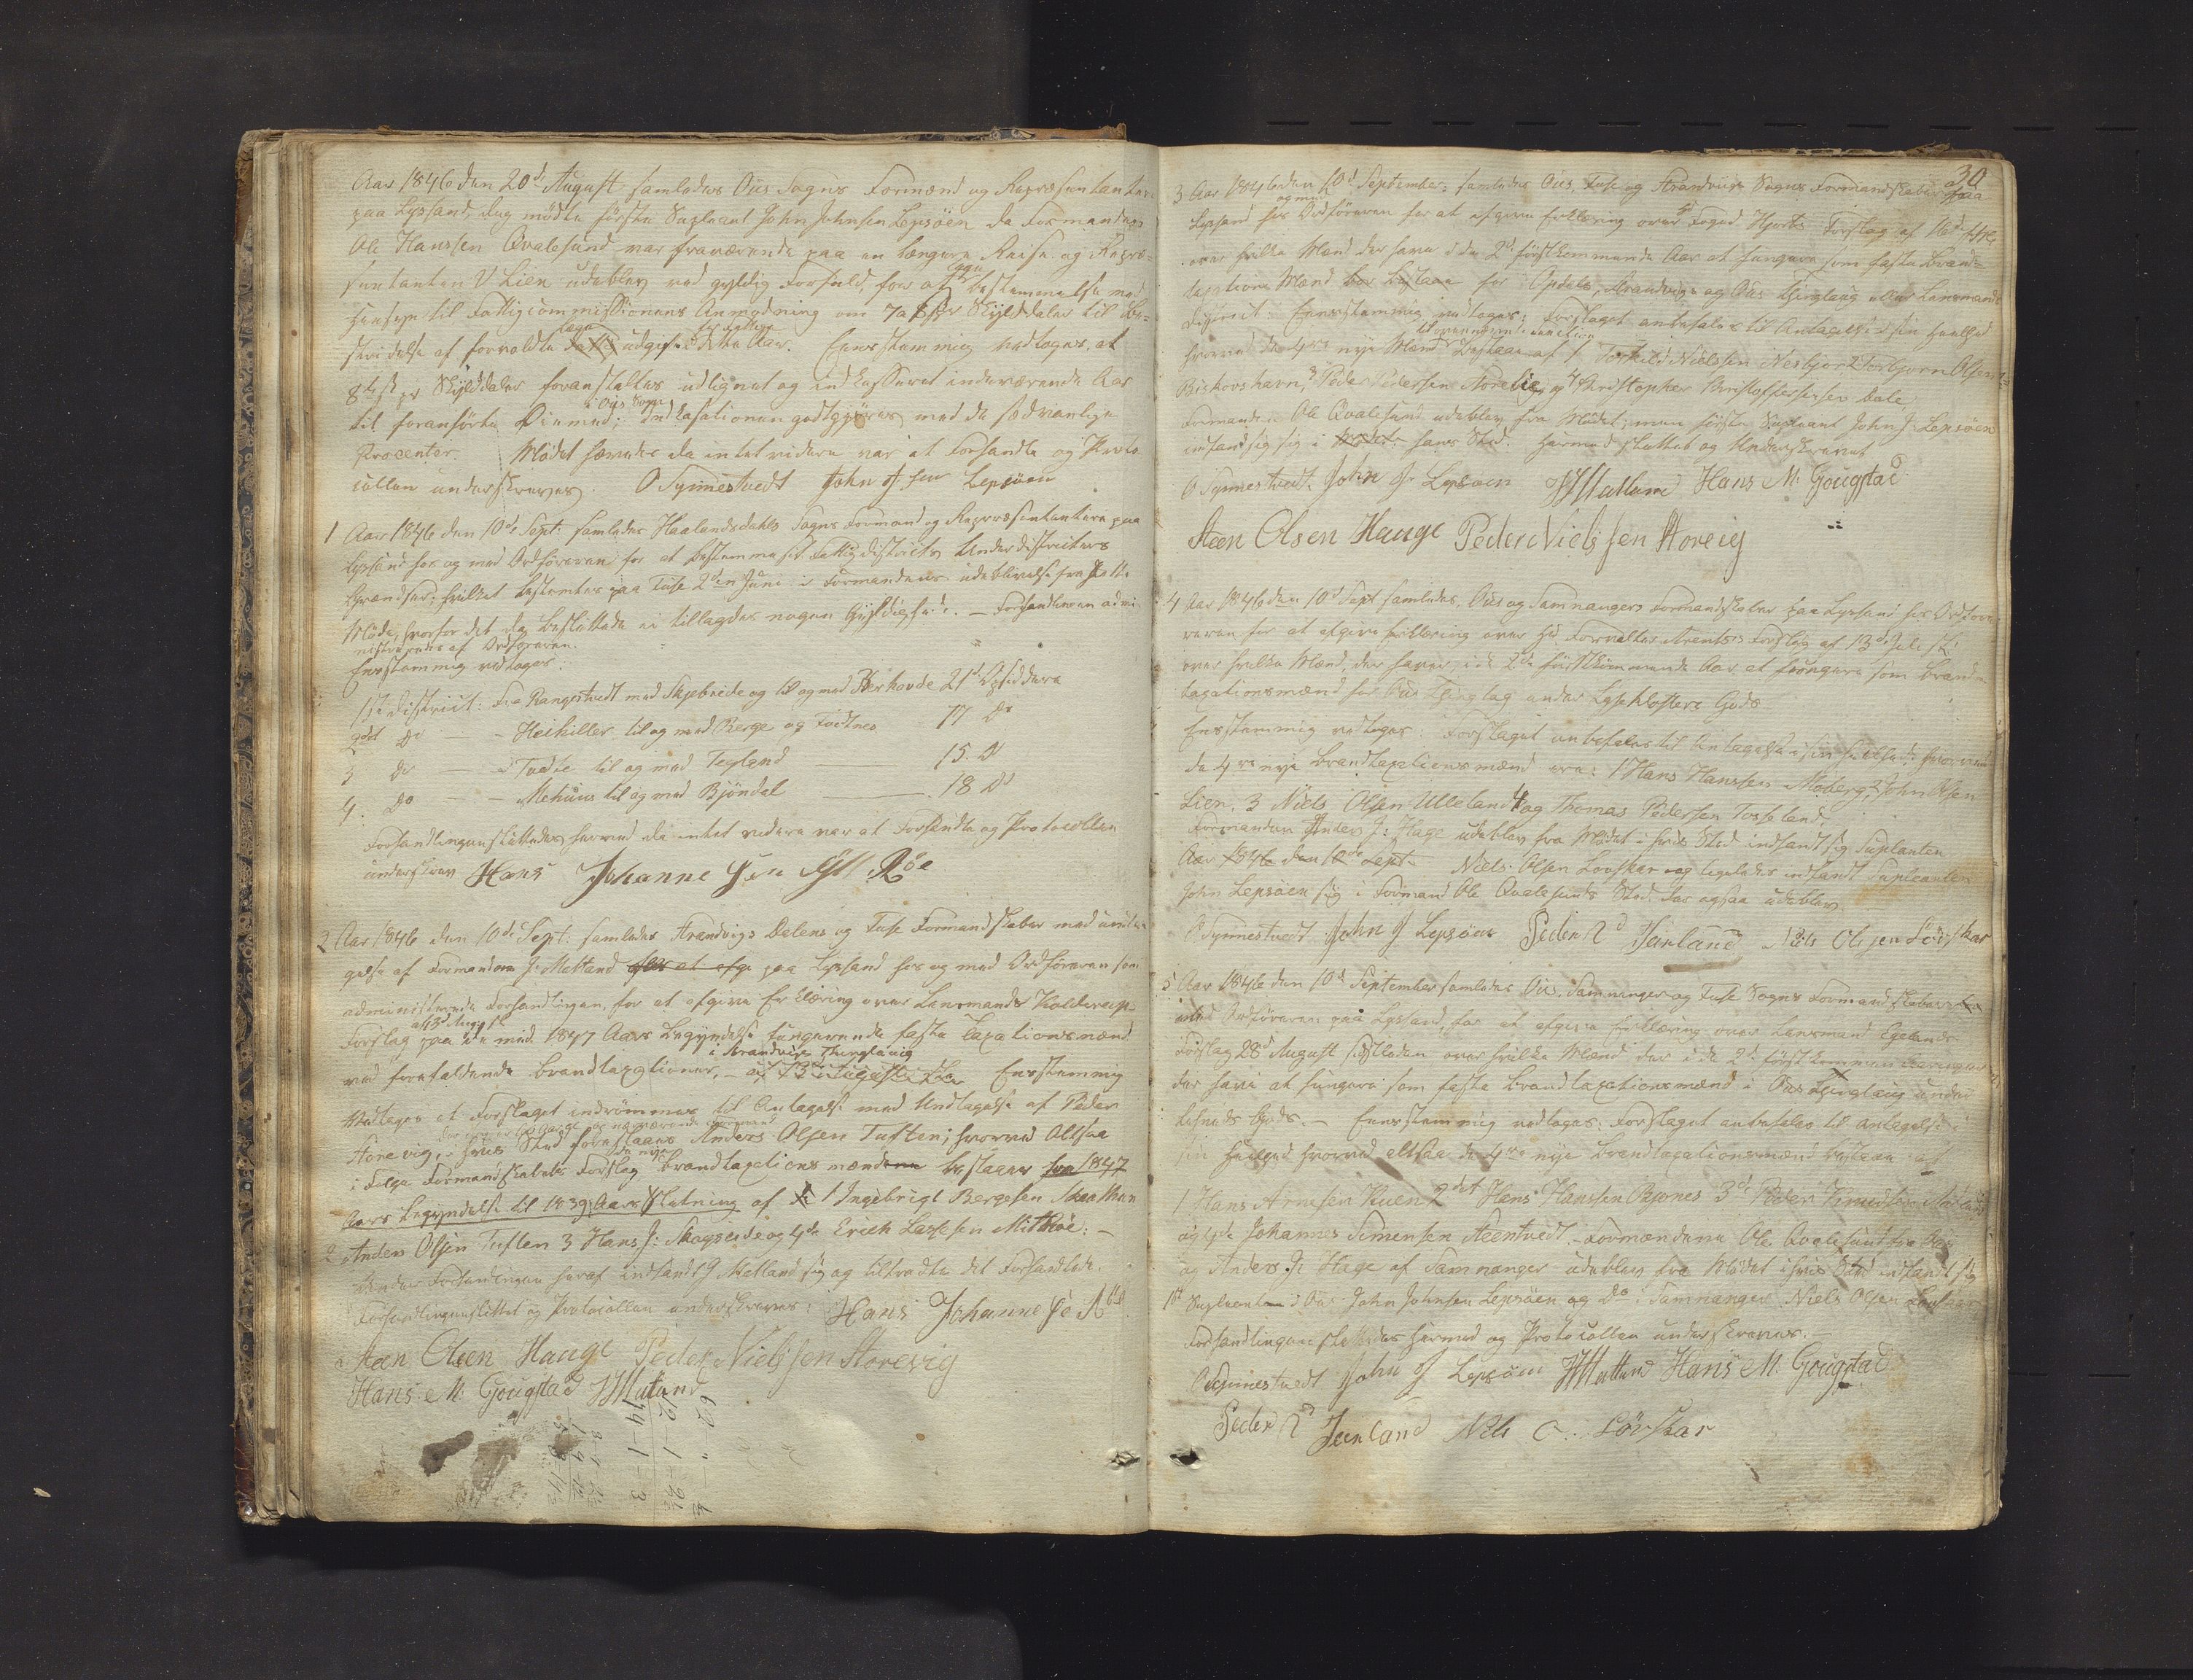 Aar 1846 den 20d August samledes Ous Sogns Formænd og Repræsentanter
paa Lyssand, dog mødte første Supleant John Johnsen Lepsöen da Formanden
Ole Hanssen Qvalesund var fraværende paa en længere Reise og Repræ=
sentanten V Lien udeblev ved gyldig Forfald, for at bestemmelse med
Hensyn til Fattigcommissionens Anmodning om 7 a 8 s pr Skylddaler til Be=
stridelse af forvoldte udgifter dette Aar. Eenstemmig vedtoges, at
8te s pr Skylddaler foranstaltes udlignet og indkasseret indeværende Aar
i Ous Sogn
til foranførte Öiemed; Indkasationen godtgjöres med de sædvanlige
Procenter. Mödet hævedes da intet videre var at Forhandle og Proto
collen underskreves. O Synnestvedt John J sen Lepsöen
1 Aar 1846 den 10de Sept. samledes Haalandsdahls Sogns Formænd og Repræsentantere paa
Lyssand hos og med Ordföreren for at bestemme sit Fattigdistricts Underdistricters
Grændser; hvilket bestemtes paa Fuse 2den Juni i Formandens udeblivelse fra
Möde, hvorfor det da besluttede ei tillagdes nogen Gyldighed. – Forhandlingen admi
nistreredes af Ordföreren.
Eenstemmig vedtoges:
1ste District: Fra Rangestvedt med Skjebreide og til og med Herhovde 21d Opsiddere
2det Do — Heihiller til og med Berge og Tvedtnes 17 Do
3 Do — Tvedte til og med Tegland — 15. D
4. Do — Mehuus til og med Bjöndal — 18 Do
Forhandlingen sluttedes hermed da intet videre var at Forhandle og Protocollen
underskreves Hans Johanne sen Röe
2 Aar 1846 den 10de Sept. samledes Strandvigs Dalens og Fuse Formandskaber med undta
gelse af Formanden J. Matland paa Lyssand hos og med Ordföreren som
administrerede Forhandlingen, for at afgive Erklæring over Lensmand Holdorups
af 3d Augst
Forslag paa de med 1847 Aars Begyndelse fungerende faste Taxationsmænd
i Strandvigs Thinglaug
ved forefaldende Brandtaxationer, – Eenstemmig
Vedtoges at Forslaget indrömmes til Antagelse med Undtagelse af Peder
Storevig, i hvis Sted foreslaaes Anders Olsen Tuften; hvorved Altsaa
de nye
i Fölge Formandskabets Forslag Brandtaxationsmændene bestaaer fra 1847
Aars Begyndelse til 1839 Aars Slutning af 1 Ingebrigt Bergesen
2 Anders Olsen Tuften 3 Hans J: Skogseide og 4de Erick Larssen Mitböe: –
Under Forhandlingen heraf indfandt J Matland sig og tiltrædte det Forhandlede.
Forhandlingen sluttet og Protocollen underskreves: Hans Johanne se Röe
Steen Olsen Hauge Peder Nielsen Storevig
Hans M. Gougstad JJMatland
30
3 Aar 1846 den 10d September samledes Ous, Fuse og Strandvigs Sogns Formandskaber paa
og med
Lyssand hos Ordföreren for at afgive Erklæring over Foged Hjorts Forslag af 16d
over hvilke Mænd der have i de 2de förstkommende Aar at fungere som faste Brand=
taxations Mænd for Opdals, Strandvigs og Ous Thinglaug
District: Eenstemmig vedtoges: Forslaget anbefales til Antagelse i sin heelhed
hvorved de 4re nye Mænd bestaae af 1 Torkild Nielsen Nesbjor 2 Torbjorn Olsen
Birkovshavn, 3 Peder Pedersen og 4 Christopher Christoffersen Bale.
Formanden Ole Qvalesund udeblev fra Mödet; men förste Supleant John J. Lepsöen
indfandt sig i hans Sted. Hermed sluttet og Underskrevet
O Synnestvedt. John J. Lepsoen JJMatland Hans M. Gougstad
Steen Olsen Hauge Peder Nielssen Storeig
4 Aar 1846 den 10d Sept samledes, Ous og Samnangers Formandskaber paa Lyssand hos Ordfö
reren for at afgive Erklæring over Hr Forvalter Arentses Forslag af 13d Juli
over hvilke Mænd, der haver i de 2de förstkommende Aar at fungere som Brand
taxationsmænd for Ous Thinglag under Lyseklosters Gods
Eenstemmig vedtoges: Forslaget anbefales til Antagelse i sin heelhed; hvorved
de 4re nye Brandtaxationsmænd ere: 1 Hans Hansen Moberg, 2 John Olsen
Lien, 3 Niels Olsen Ulleland 4 og Thomas Pedersen Tosseland.
Formanden Anders J: Hage udeblev fra Mödet i hvis Sted indfandt sig Suplanten
Aar 1846 den 10de Sept. Niels Olsen Louskar og ligeledes indfandt Supleanten
John Lepsöen sig i Formand Ole Qvalesunds Sted der ogsaa udeblev
O Synnestvedt John J Lepsöen Peder Jenland Niels Olsen Lövskar
5 Aar 1846 den 10d September samledes Ous, Samnanger og Fuse Sogns Formandskaber
med Ordföreren paa Lyssand, for at afgive Erklæring over Lensmand Egelands
Forslag 28d August sidstleden over hvilke Mænd der i de 2de först kommende
der have at fungere som faste Brandtaxationsmænd i Ous Thinglaug under
Gods. – Eenstemmig vedtoges: Forslaget anbefales til antagelse i
sin Heelhed hvorved altsaa de 4re nye Brandtaxationsmænd bestaae af
1 Hans Arnesen Huen 2det Hans Hansen Röjnes 3d Peder Knudsen
og 4de Johannes Simensen Steentvedt. Formændene Ole Qvalesund fra Ous
og Anders J: Hage af Samnanger udeblev fra Mödet i hvis Sted indfandt sig
1st Supleant i Ous John Johnsen Lepsöen og Do i Samnanger Niels Olsen
Forhandlingen sluttedes hermed og Protocollen underskreves. –
O Synnestvedt John J Lepsöen JJMatland Hans M. Gougstad
Peder Jenland Niels O.. Lövskar